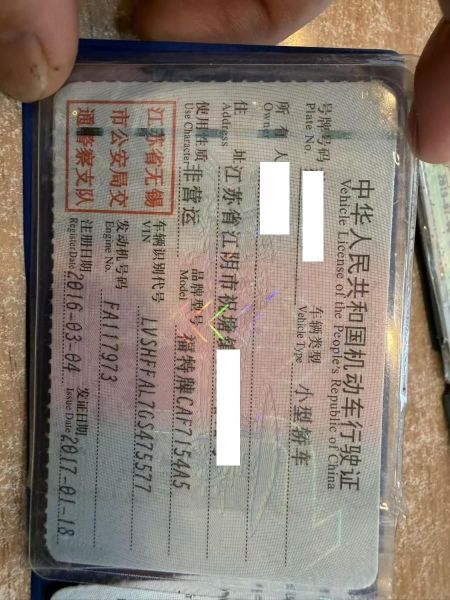 中华人民共和国机动车行驶证
Vehicle License of the People's Republic of China
号牌号码
Plate No.
车辆类型
Vehicle Type
小型轿车
所有人
Owner
住址
Address
江苏省江阴市祝塘
使用性质
Use Character
非营运
品牌型号
Model
福特牌CAF7154A5
江苏省无锡
市公安局交
通警察支队
车辆识别代号
VIN
LVSHFFAL7GS475577
发动机号码
Engine No.
FA117973
注册日期
Register Date
2016-03-04
发证日期
Issue Date
2017-01-18